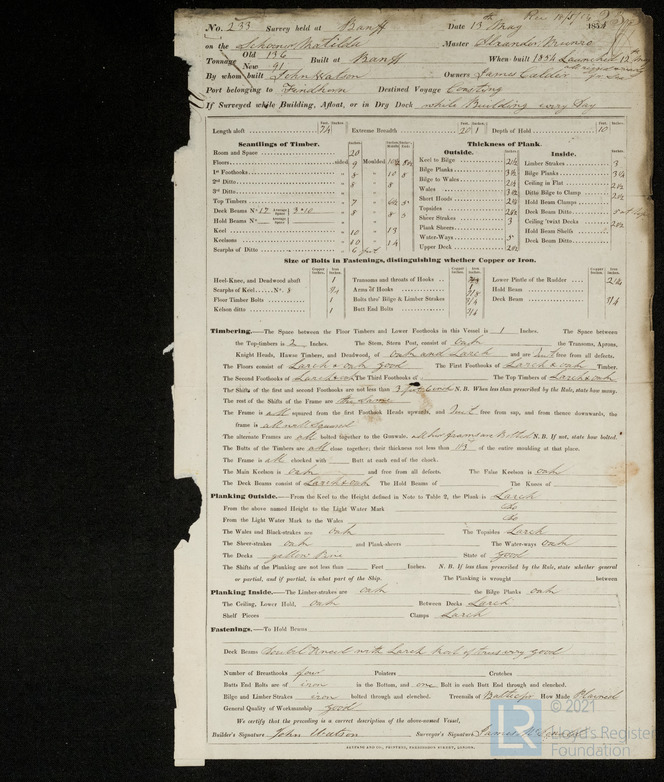 No. 233 Survey held at Banff Date 13th May 1854
on the Schooner Matilda Master Alexander Munro
Tonnage Old 136 New 91 Built at Banff When built 1854 Launched 12th May
By whom built John Watson Owners James Calder
Port belonging to Findhorn Destined Voyage Coasting
If Surveyed while Building, Afloat, or in Dry Dock while Building every day
Length aloft 74 Extreme Breadth 20 1 Depth of Hold 10
Scantlings of Timber.
Thickness of Plank.
Outside. Inside.
Room and Space 20
Floors sided 9 Moulded
1st Foothooks 8 10 8
2nd Ditto 8 8
3rd Ditto
Top Timbers 7
Deck Beams No. 17 Average Space 3"10 8 8
Hold Beams No. Average Space
Keel 10 13
Keelsons 10 14
Scarphs of Ditto 6 feet
Keel to Bilge 2½
Bilge Planks 3½
Bilge to Wales 2½
Wales 3½
Short Hoods 2½
Topsides
Sheer Strakes 3
Plank Sheers
Water-Ways 5
Upper Deck 2½
Limber Strakes 3
Bilge Planks 3¼
Ceiling in Flat 2½
Ditto Bilge to Clamp 2½
Hold Beam Clamps 2½
Deck Beam Ditto
Ceiling 'twixt Decks 2½
Hold Beam Shelfs
Deck Beam Ditto
Size of Bolts in Fastenings, distinguishing whether Copper or Iron.
Heel-Knee, and Deadwood abaft 1
Scarphs of Keel No. 3 ¾
Floor Timber Bolts 1
Kelson ditto 1
Transoms and throats of Hooks
Arms of Hooks
Bolts thro' Bilge & Limber Strakes
Butt End Bolts ¾
Lower Pintle of the Rudder 2¼
Hold Beam
Deck Beam ¾
Timbering.—The Space between the Floor Timbers and Lower Foothooks in this Vessel is 1 Inches. The Space between
the Top-timbers is 2 Inches. The Stem, Stern Post, consist of oak the Transoms, Aprons,
Knight Heads, Hawse Timbers, and Deadwood, of oak and Larch and are free from all defects.
The Floors consist of Larch & oak good The First Foothooks of Larch & oak Timber.
The Second Foothooks of Larch & oak The Third Foothooks of The Top Timbers of Larch & oak
The Shifts of the first and second Foothooks are not less than 3 feet 6 inch N.B. When less than prescribed by the Rule, state how many.
The rest of the Shifts of the Frame are the Same
The Frame is all squared from the first Foothook Heads upwards, and free from sap, and from thence downwards, the
frame is all well squared
The alternate Frames are all bolted together to the Gunwale. N.B. If not, state how bolted.
The Butts of the Timbers are all close together; their thickness not less than 1/3 of the entire moulding at that place.
The Frame is all chocked with Butt at each end of the chock.
The Main Keelson is oak and free from all defects. The False Keelson is oak
The Deck Beams consist of Larch & oak The Hold Beams of The Knees of
Planking Outside.—From the Keel to the Height defined in Note to Table 2, the Plank is Larch
From the above named Height to the Light Water Mark do
From the Light Water Mark to the Wales do
The Wales and Black-strakes are oak The Topsides Larch
The Sheer-strakes oak and Plank-sheers The Water-ways oak
The Decks yellow Pine State of good
The Shifts of the Planking are not less than Feet Inches. N.B. If less than prescribed by the Rule, state whether general
or partial, and if partial, in what part of the Ship. The Planking is wrought between
Planking Inside.—The Limber-strakes are oak the Bilge Planks oak
The Ceiling, Lower Hold, oak Between Decks Larch
Shelf Pieces Clamps Larch
Fastenings.—To Hold Beams
Deck Beams Double Kneed with Larch very good
Number of Breasthooks four Pointers Crutches
Butts End Bolts are of iron in the Bottom, and one Bolt in each Butt End through and clenched.
Bilge and Limber Strakes iron bolted through and clenched. Treenails of Baltic How Made Plained
General Quality of Workmanship Good
We certify that the preceding is a correct description of the above-named Vessel,
Builder's Signature John Watson Surveyor's Signature
© 2021
LR Lloyd's Register
Foundation